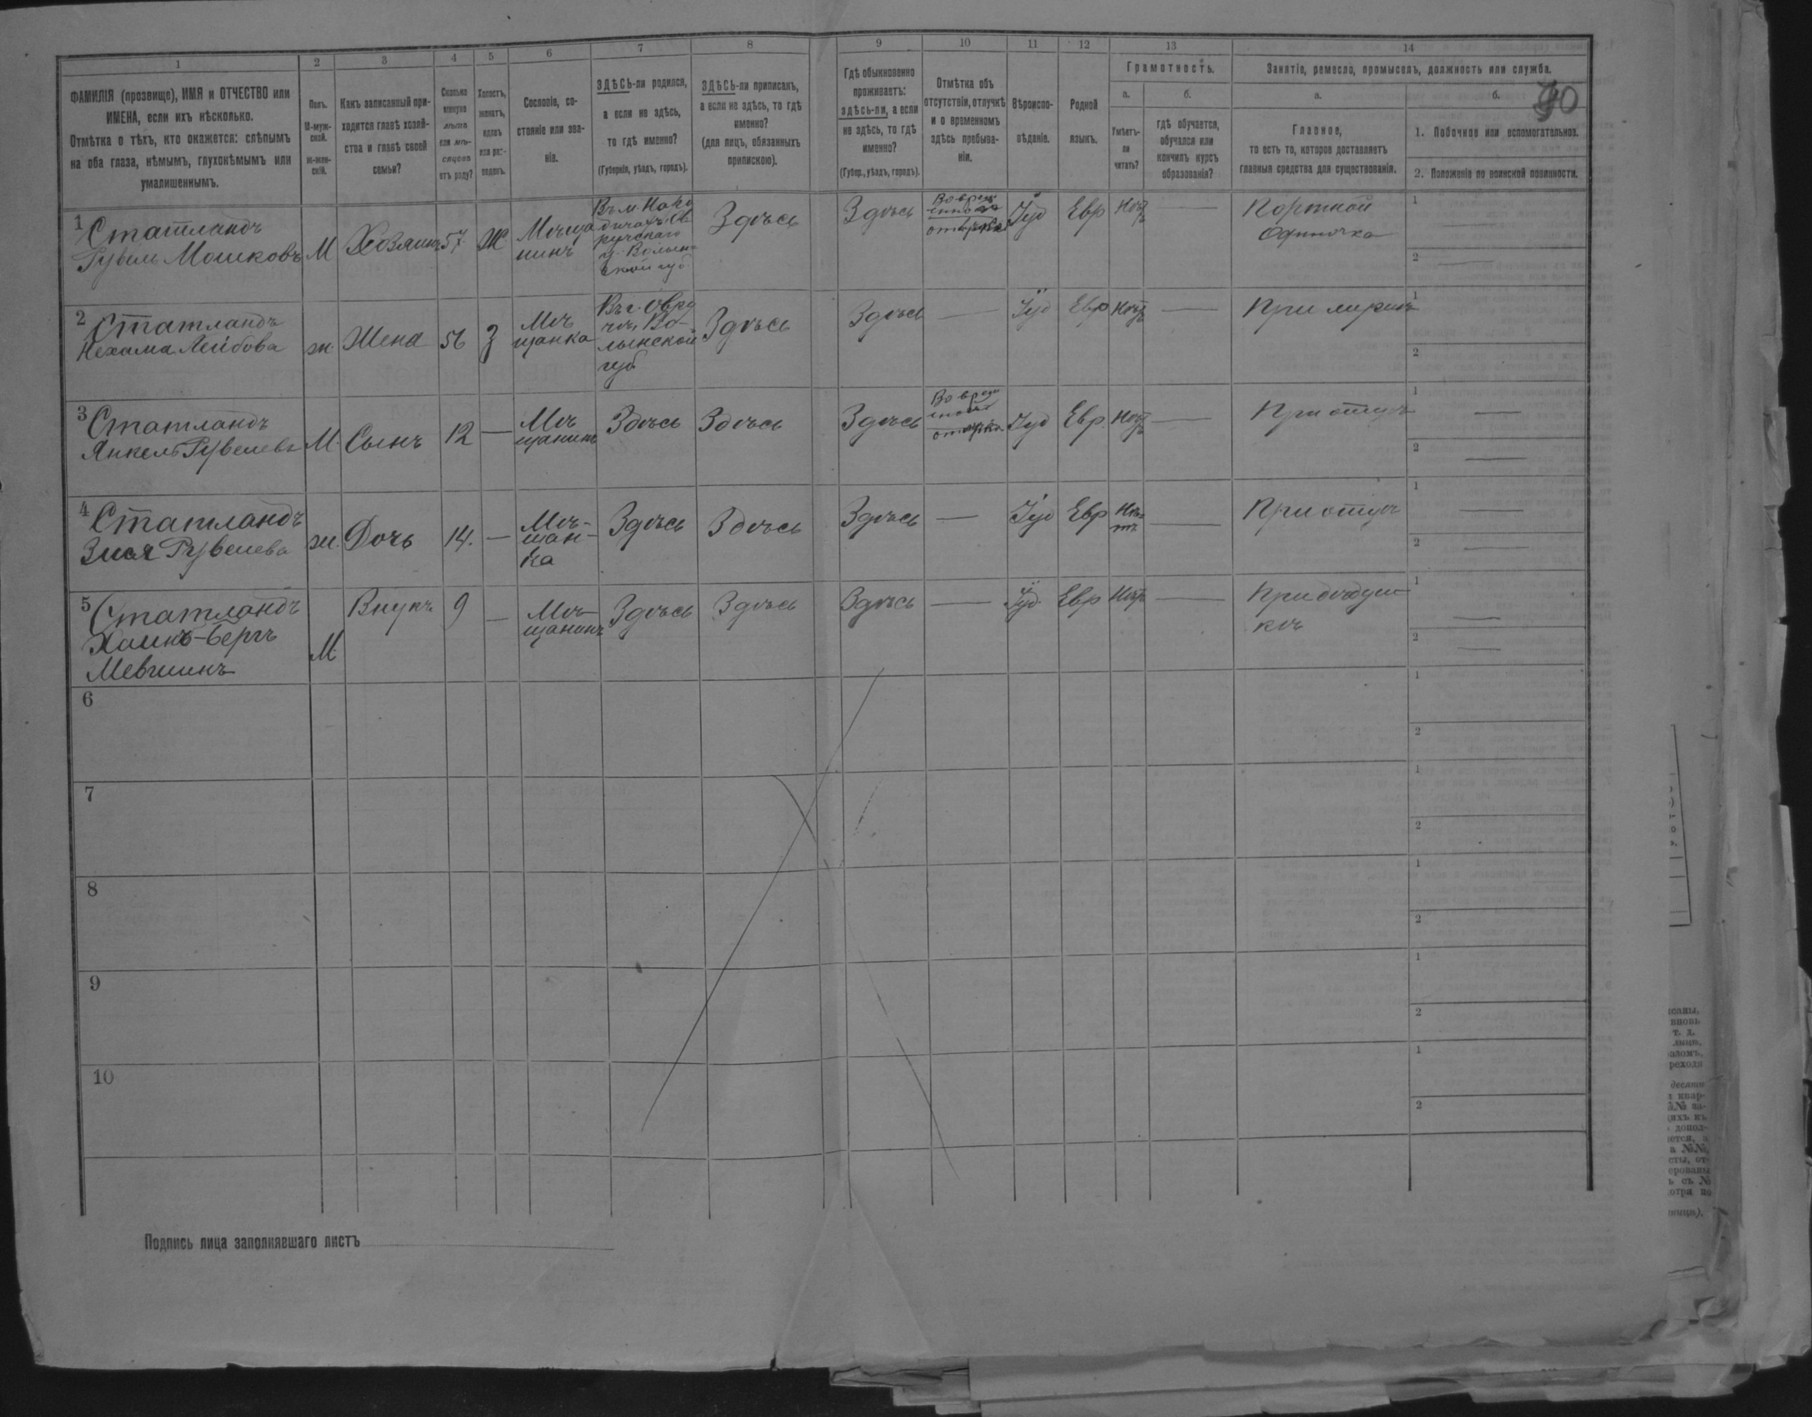 1 2 3 4 5 6 7 8 9 10 11 12 13 14
ФАМИЛІЯ (прозвище), ИМЯ и ОТЧЕСТВО или
ИМЕНА, если ихъ нѣсколько.
Отмѣтка о тѣхъ, кто окажется: слѣпымъ
на оба глаза, нѣмымъ, глухонѣмымъ или
умалишеннымъ.
Полъ.
М-муж-
ской.
ж-жен-
скій.
Какъ записанный при-
ходится главѣ хозяй-
ства и главѣ своей
семьи?
Сколько
минуло
лѣтъ
или мѣ-
сяцевъ
отъ роду?
Холостъ,
женатъ,
вдовъ
или раз-
веденъ.
Сословіе, со-
стояніе или зва-
ніе.
ЗДѢСЬ-ли родился,
а если не здѣсь,
то гдѣ именно?
(Губернія, уѣздъ, городъ).
ЗДѢСЬ-ли приписанъ,
а если не здѣсь, то гдѣ
именно?
(для лицъ, обязанныхъ
припискою).
Гдѣ обыкновенно
проживаетъ:
здѣсь-ли, а если
не здѣсь, то гдѣ
именно?
(Губер., уѣздъ, городъ).
Отмѣтка объ
отсутствіи, отлучкѣ
и о временномъ
здѣсь пребыва-
ніи.
Вѣроиспо-
вѣданіе.
Родной
языкъ.
Грамотность.
а.
Умѣетъ-
ли
читать?
б.
гдѣ обучается,
обучался или
кончилъ курсъ
образованія?
Занятіе, ремесло, промыселъ, должность или служба.
а.
Главное,
то есть то, которое доставляетъ
главныя средства для существованія.
б.
1. Побочное или вспомогательное.
2. Положеніе по воинской повинности.
1 Статландъ
Рувель Мошковъ М Хозяинъ 57 Ж Мѣща
нинъ
Здѣсь Здѣсь Іуд Евр Нѣтъ — Портной
Одиночка
1 —
2 —
2 Статландъ
Нехама Лейбова ж. Жена 56 З Мѣ
щанка
Въ г. Овру
чѣ, Во-
лынской
губ
Здѣсь Здѣсь — Іуд Евр Нѣтъ — При мужѣ
1
2
3 Статландъ
Янкель Рувелевъ М Сынъ 12 — Мѣ
щанинъ
Здѣсь Здѣсь Здѣсь Іуд Евр Нѣтъ — При отцѣ
1 —
2 —
4 Статландъ
Злоя Рувелева ж. Дочь 14. — Мѣ-
щан-
ка
Здѣсь Здѣсь Здѣсь — Іуд Евр Нѣ
тъ — При отцѣ
1 —
2 —
5 Статландъ
Хаимъ-Беръ
М Внукъ 9 — Мѣ-
щанинъ
Здѣсь Здѣсь Здѣсь — Іуд Евр Нѣтъ — При дѣдуш
кѣ
1 —
2 —
6
1
2
7
1
2
8
1
2
9
1
2
10
1
2
Подпись лица заполнявшаго листъ